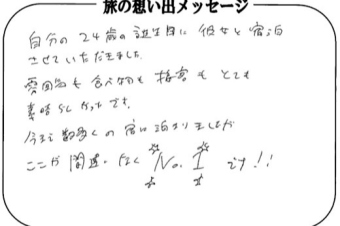 旅の想い出メッセージ
自分の24歳の誕生日に彼女と宿泊
させていただきました。
雰囲気も食べ物も接客もとても
素晴らしかったです。
今まで数多くの宿に泊まりましたが
ここが間違いなくNo.1です!!